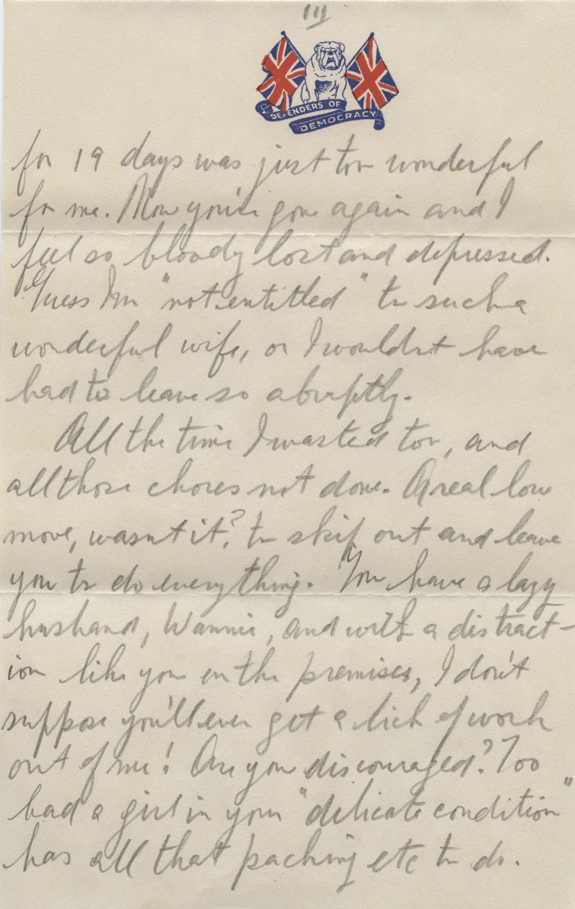 III
DEFENDERS OF
DEMOCRACY
for 19 days was just too wonderful
for me. Now you're gone again and I
feel so bloody lost and depressed.
Guess I'm "not entitled" to such a
wonderful wife, or I wouldn't have
had to leave so abruptly.
All the time I wasted too, and
all those chores not done. A real low
move, wasn't it? to skip out and leave
you to do everything. You have a lazy
husband, Wannie, and with a distract-
ion like you on the premises, I don't
suppose you'll ever get a lick of work
out of me! Are you discouraged? Too
bad a girl in your "delicate condition"
has all that packing etc to do.